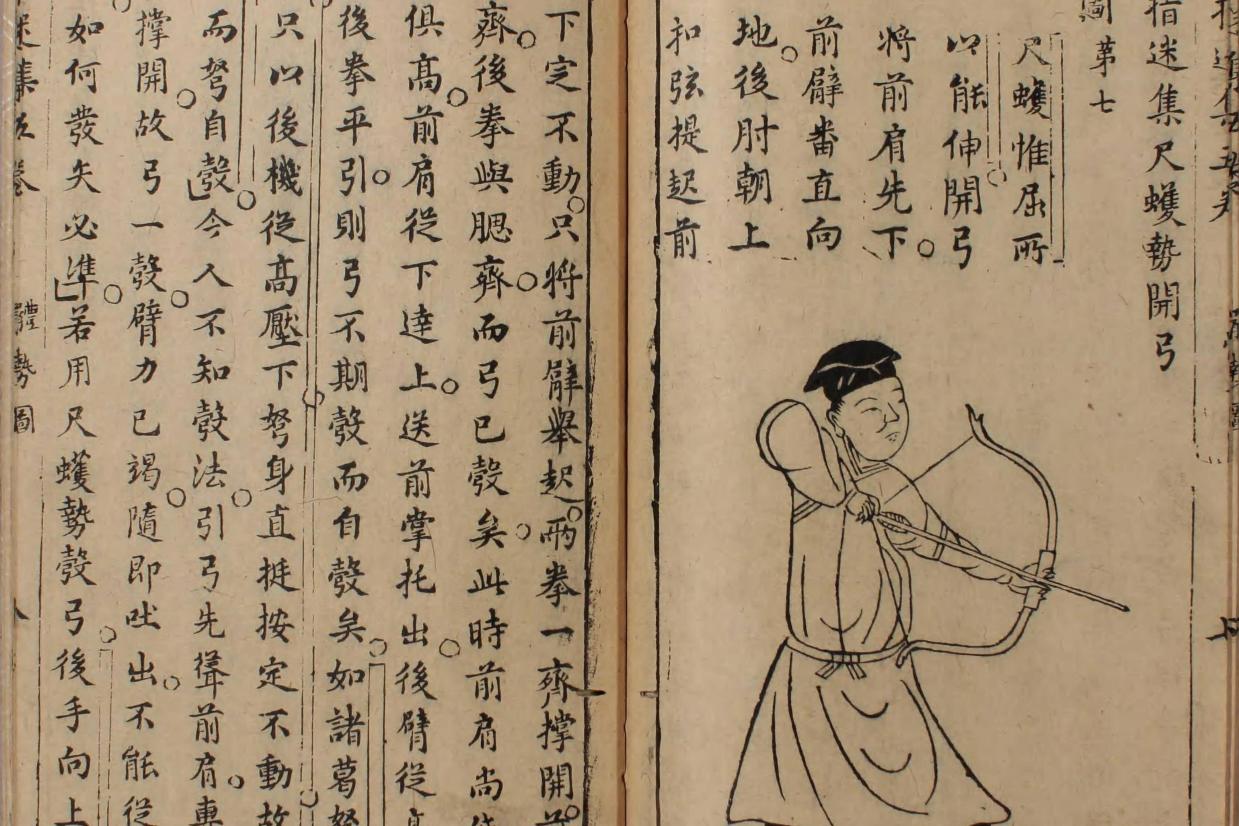 指迷集尺蠖勢開弓
圖第七
尺蠖惟屈所
以能伸開弓
將前肩先下
前臂番直向
地後肘朝上
扣弦提起前
下定不動只將前臂舉起兩拳一齊撐開
齊後拳與腮齊而弓已彀矣此時前肩尚
俱高前肩從下達上送前掌托出後臂從
後拳平引則弓不期彀而自彀矣如諸葛弩
只以後機從高壓下弩身直挺按定不動故
而弩自彀今人不知彀法引弓先聳前肩專
撐開故弓一彀臂力已竭隨即吐出不能從
如何發矢必準若用尺蠖勢彀弓後手向上
迷集五卷
體勢圖